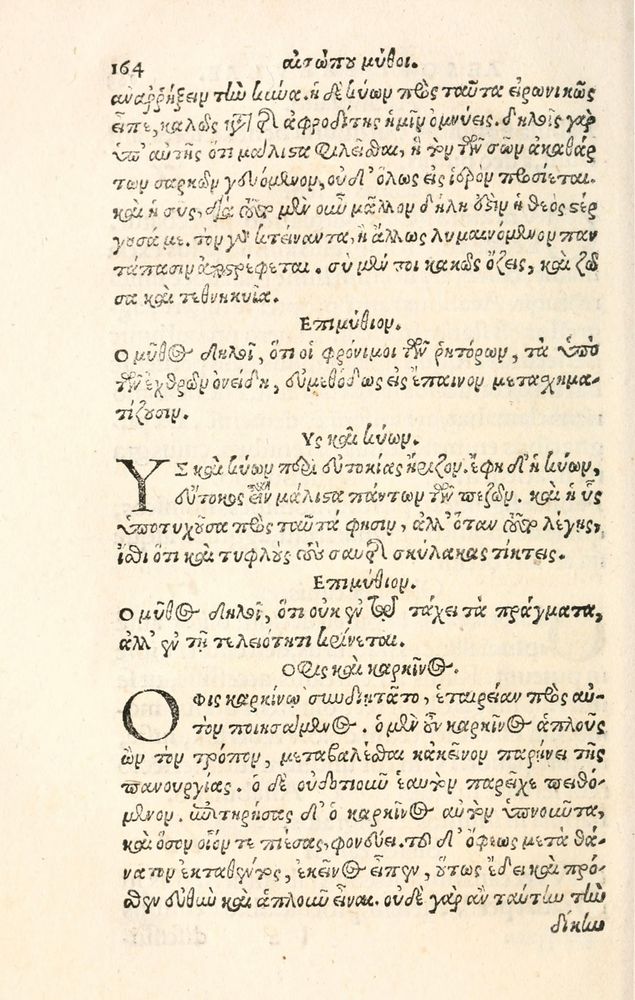 164 αἰσώπου μῦθοι.
ἀναῤῥήξειν τὴν κύνα. ἡ δὲ κύων πρὸς ταῦτα εἰρωνικῶς
εἶπε, καλῶς κατὰ τῆς ἀφροδίτης ἡμῖν ὀμνύεις. δηλοῖς γὰρ
ὑπ' αὐτῆς ὅτι μάλιστα φιλεῖσθαι, ἣ τὸν τῶν σῶν ἀκαθάρ
των σαρκῶν γευόμενον, οὐδ' ὅλως εἰς ἱερὸν προσίεται.
καὶ ἡ σῦς, διὰ τοῦτο μὲν οὖν μᾶλλον δήλη ἐστὶν ἡ θεὸς στέρ
γουσά με. τὸν γὰρ κτείναντα, ἢ ἄλλως λυμαινόμενον παν
τάπασιν ἀποστρέφεται. σὺ μέν τοι κακῶς ὄζεις, καὶ ζῶ
σα καὶ τεθνηκυῖα.
Επιμύθιον.
Ο μῦθος δηλοῖ, ὅτι οἱ φρόνιμοι τῶν ῥητόρων, τὰ ὑπὸ
τῶν ἐχθρῶν ὀνείδη, εὐμεθόδως εἰς ἔπαινον μετασχημα-
τίζουσιν.
Υς καὶ κύων.
ΥΣ καὶ κύων περὶ εὐτοκίας ἤριζον. ἔφη δ' ἡ κύων,
εὔτοκος εἶναι μάλιστα πάντων τῶν πεζῶν. καὶ ἡ ὗς
ὑποτυχοῦσα πρὸς ταῦτά φησιν, ἀλλ' ὅταν τοῦτο λέγῃς,
ἴσθι ὅτι καὶ τυφλοὺς τοὺς σαυτῆς σκύλακας τίκτεις.
Επιμύθιον.
Ο μῦθος δηλοῖ, ὅτι οὐκ ἐν τῷ τάχει τὰ πράγματα,
ἀλλ' ἐν τῇ τελειότητι κρίνεται.
Οφις καὶ καρκῖνος.
Οφις καρκίνῳ συνδιῃτᾶτο, ἑταιρείαν πρὸς αὐ-
τὸν ποιησάμενος. ὁ μὲν οὖν καρκῖνος ἁπλοῦς
ὢν τὸν τρόπον, μεταβαλέσθαι κἀκεῖνον παρῄνει τῆς
πανουργίας. ὁ δὲ οὐδοτιοῦν ἑαυτὸν παρεῖχε πειθό-
μενον. ἐπιτηρήσας δ' ὁ καρκῖνος αὐτὸν ὑπνοῦντα,
καὶ ὅσον οἷόν τε πιέσας, φονεύει. τοῦ δ' ὄφεως μετὰ θά-
νατον ἐκταθέντος, ἐκεῖνος εἶπεν, οὕτως ἔδει καὶ πρό-
σθεν εὐθὺν καὶ ἁπλοῦν εἶναι. οὐδὲ γὰρ ἂν ταύτην τὴν
δίκην